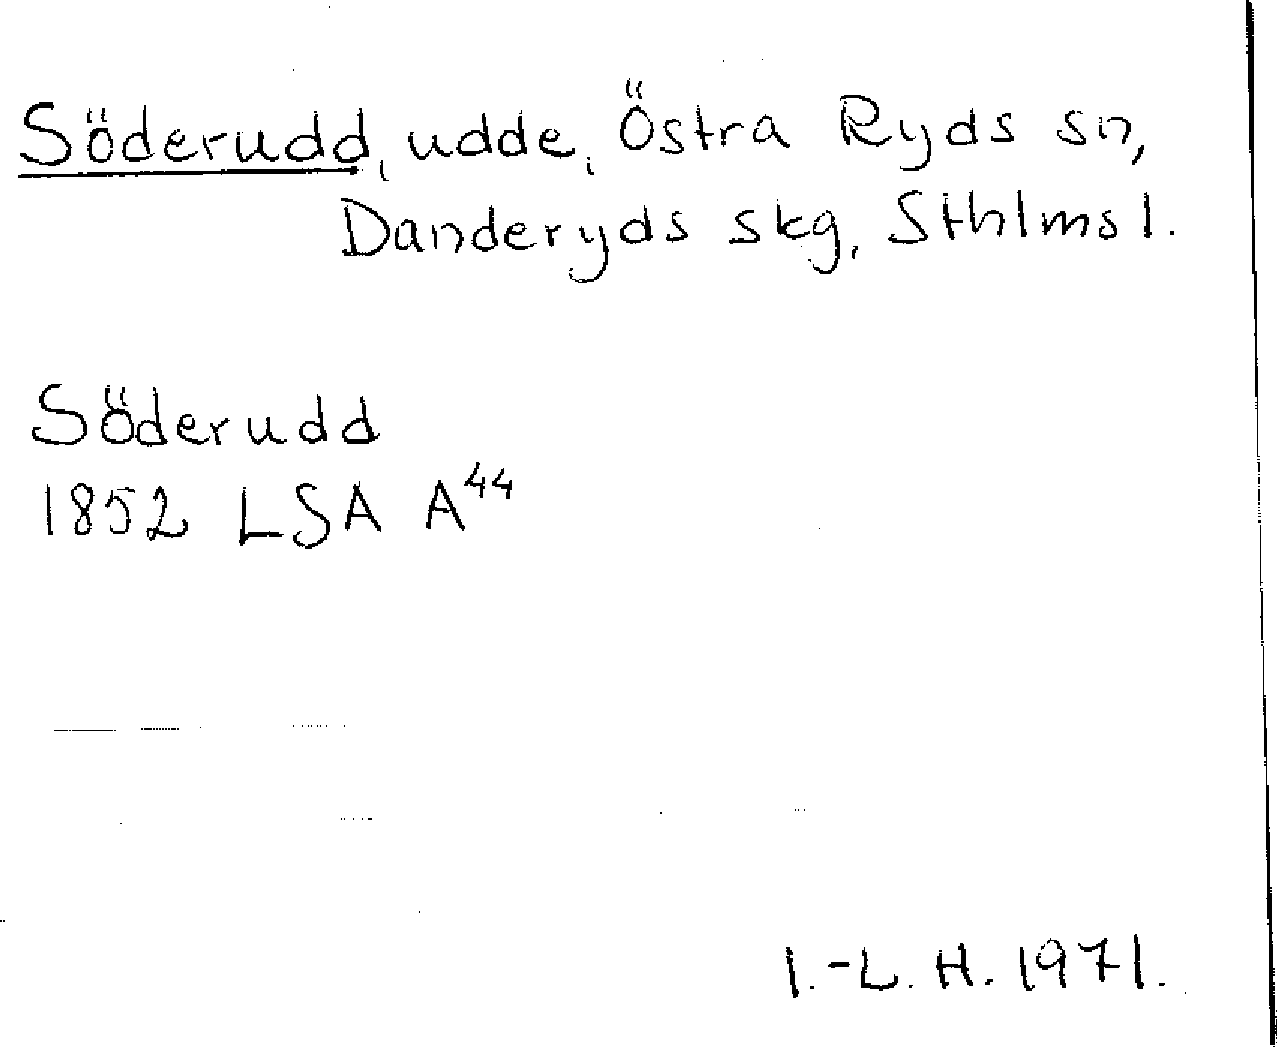 Söderudd, udde, Östra Ryds sn,
Danderyds skg, Sthlms l.
Söderudd
1852 LSA A⁴⁴
I.-L. H. 1971.